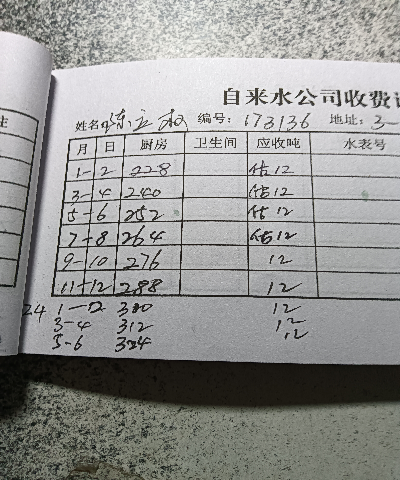 自来水公司收费
姓名 陈立 编号: 173136 地址: 3-
月 日 厨房 卫生间 应收吨 水表号
1-2 228 估12
3-4 240 估12
5-6 252 估12
7-8 264 估12
9-10 276 12
11-12 288 12
24 1-2 300 12
3-4 312 12
5-6 324 12